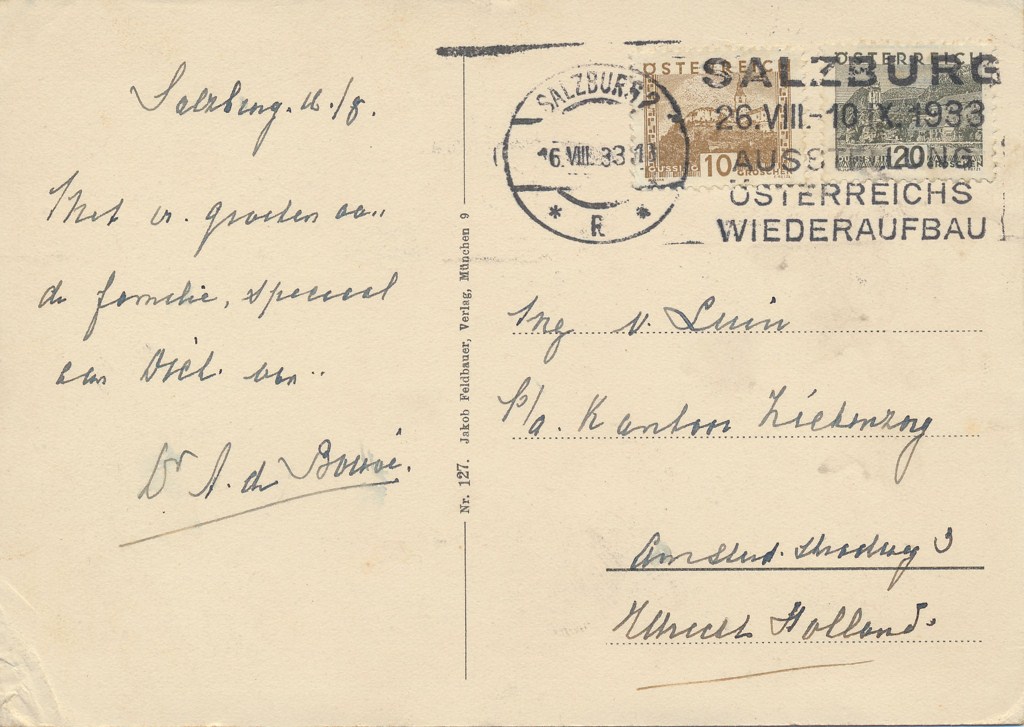 Salzburg.
Met vr. groeten aan
de familie, speciaal
aan Dick van
Dr A. de
Nr. 127. Jakob Feldbauer, Verlag, München 9
SALZBURG 2
16.VIII.33
R
ÖSTERREICH
GÜSSING 10 GROSCHEN
ÖSTERREICH
20
SALZBURG
26.VIII.-10.X.1933
AUSSTELLUNG
ÖSTERREICHS
WIEDERAUFBAU
Ing v. Luin
P/a. Kantoor Ziekenzorg
Amsterd. straatweg 3
Utrecht Holland.